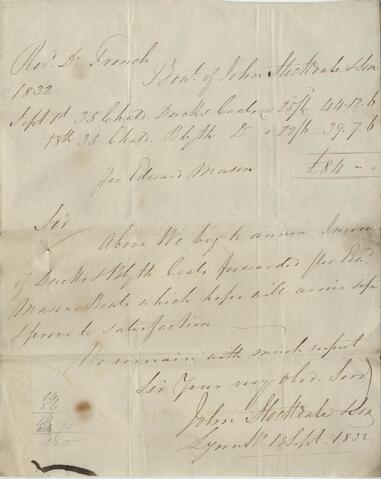 Revd. Dr. French
Bout. of John Stockdale & Son
1832
Sept 1st 35 Chals. Ducks Coals @ 25/6 44.12.6
18th 35 Chals. Blyth Do. @ 22/6 39.7.6
£84 - -
for Edward Mason
Sir
Above We beg to annex Invoice
of Ducks & Blyth Coals forwarded per Ed.
Mason Boats which hope will arrive safe
& prove to satisfaction.
We remain with much respect
Sir Your very Obed. Servts
John Stockdale & Son
Lynn 18 Sept. 1832